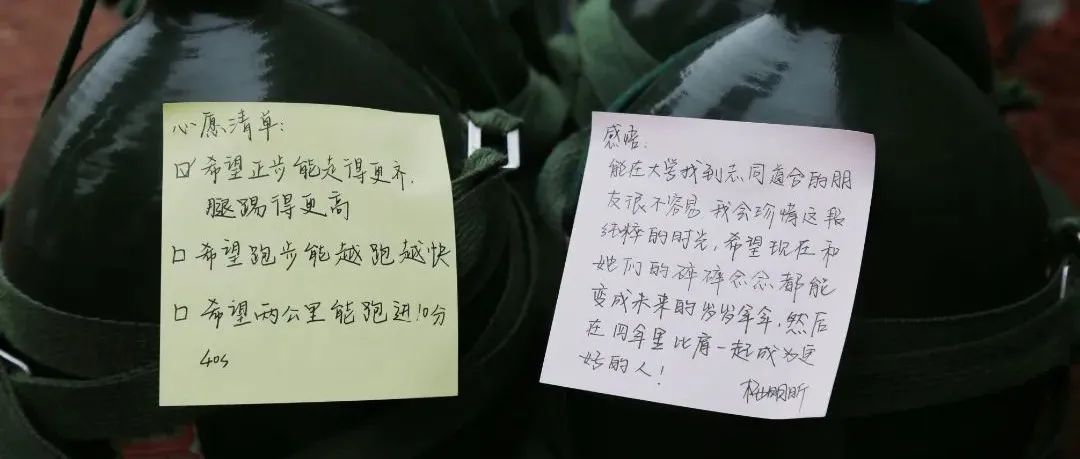 心愿清单:
希望正步能走得更齐,
腿踢得更高
希望跑步能越跑越快
希望两公里能跑进10分
40s
感悟:
能在大学找到志同道合的朋
友很不容易 我会珍惜这段
纯粹的时光,希望现在和
她们的碎碎念念都能
变成未来的岁岁年年,然后
在四年里比肩一起成为更
好的人!